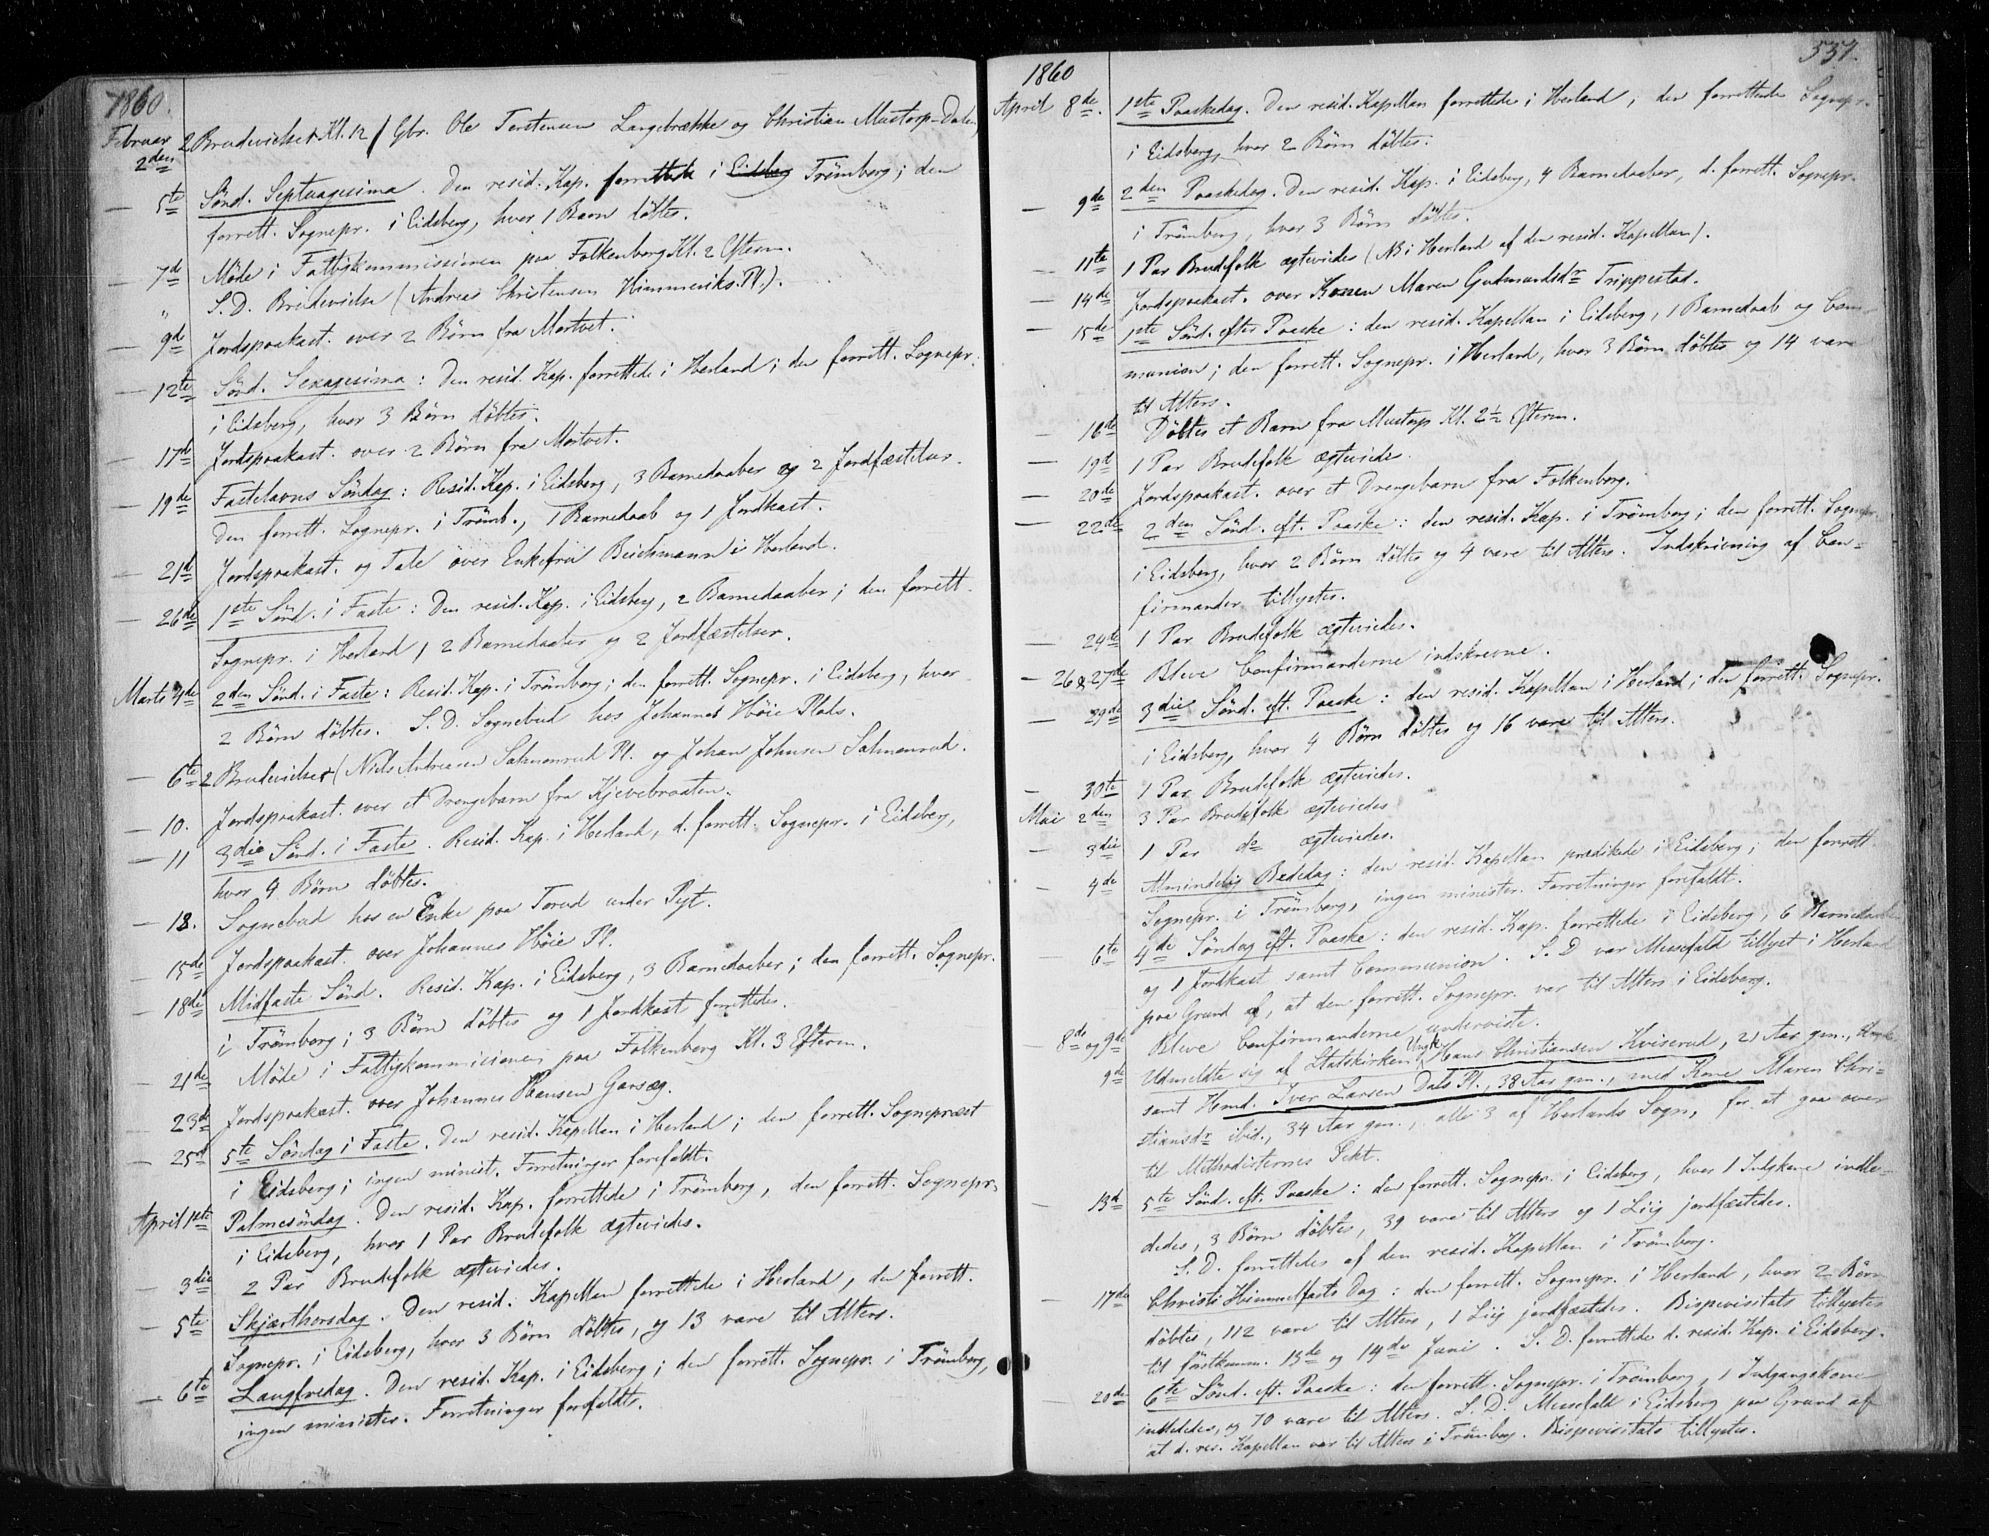 1860.
Februar 2den 2 Brudevielser Kl. 12 / Gbr. Ole Torstensen Langebrække og Christian Mustorp-Dalen)
— 5te Sönd. Septuagesima. Den resid. Kap. forrettede i Eidsberg Trömborg; den
forrett. Sognepr. i Eidsberg, hvor 1 Barn döbtes.
— 7d Möde i Fattigkommissionen paa Folkenborg Kl. 2 Efterm.
" S. D. Brudevielse (Andreas Christensen Himmeriks. Pl.).
— 9d Jordspaakast. over 2 Börn fra Mortvet.
— 12te Sönd. Sexagesima: Den resid. Kap. forrettede i Herland; den forrett. Sognepr.
i Eidsberg, hvor 3 Börn döbtes.
— 17de Jordspaakast. over 2 Börn fra Mortvet.
— 19de Fastelavns Söndag: Resid. Kap. i Eidsberg, 3 Barnedaaber og 2 Jordfæstelser.
Den forrett. Sognepr. i Trömb., 1 Barnedaab og 1 Jordkast.
— 21de Jordspaakast. og Tale over Enkefru Beichmann i Herland.
— 26de 1ste Sönd. i Faste: Den resid. Kap. i Eidsberg, 2 Barnedaaber; den forrett.
Sognepr. i Herland, 2 Barnedaaber og 2 Jordfæstelser.
Marts 4de 2den Sönd. i Faste: Resid. Kap. i Trömborg; den forrett. Sognepr. i Eidsberg, hvor
2 Börn döbtes. S. D. Sognebud hos Johannes Höie Plads.
— 6te 2 Brudevielser (Niels Andreasen Salmonrud Pl. og Johan Johnsen Salmonrud.
— 10. Jordspaakast. over et Drengebarn fra Kjevebraaten.
— 11 3die Sönd. i Faste. Resid. Kap. i Herland, d. forrett. Sognepr. i Eidsberg,
hvor 4 Börn döbtes.
— 13. Sognebud hos en Enke paa Torud under Pyt.
— 15de Jordspaakast. over Johannes Höie Pl.
— 18de Midfaste Sönd. Resid. Kap. i Eidsberg, 3 Barnedaaber; den forrett. Sognepr.
i Trömborg; 3 Börn döbtes og 1 Jordkast forrettedes.
— 21de Möde i Fattigkommissionen paa Folkenborg Kl. 3 Efterm.
— 23d Jordspaakast. over Johannes Hansen Garsæg.
— 25d 5te Söndag i Faste. Den resid. Kapellan i Herland; den forrett. Sognepræst
i Eidsberg; ingen minist. Forretninger forefaldt.
April 1ste Palmesöndag. Den resid. Kap. forrettede i Trömborg, den forrett. Sognepr.
i Eidsberg, hvor 1 Par Brudefolk ægtevidedes.
— 3die 2 Par Brudefolk ægtevidedes.
— 5te Skjærthorsdag. Den resid. Kapellan forrettede i Herland, den forrett.
Sognepr. i Eidsberg, hvor 3 Börn döbtes, og 13 vare til Alters.
— 6te Langfredag. Den resid. Kap. i Eidsberg; den forrett. Sognepr. i Trömborg,
ingen minister. Forretninger forefaldt.
1860
537.
April 8de. 1ste Paaskedag. Den resid. Kapellan forrettede i Herland, den forrettende Sognepr.
i Eidsberg, hvor 2 Börn döbtes.
— 9de 2den Paaskedag. Den resid. Kap. i Eidsberg, 4 Barnedaaber, d. forrett. Sognepr.
i Trömborg, hvor 3 Börn döbtes.
— 11te 1 Par Brudefolk ægtevides (NB i Herland af den resid. Kapellan).
— 14de Jordspaakast. over Konen Maren Gudmundsdr Trippestad.
— 15de 1ste Sönd. efter Paaske: den resid. Kapellan i Eidsberg, 1 Barnedaab og Com-
munion; den forrett. Sognepr. i Herland, hvor 3 Börn döbtes og 14 vare
til Alters.
— 18de Döbtes et Barn fra Mustorp Kl. 2½ Efterm.
— 19d 1 Par Brudefolk ægtevides.
— 20de Jordspaakast. over et Drengebarn fra Folkenborg.
— 22de 2den Sönd. eft. Paaske: den resid. Kap. i Trömborg; den forrett. Sognepr.
i Eidsberg, hvor 2 Börn döbtes og 4 vare til Alters. Indskrivning af Con-
firmander tillystes.
— 24de 1 Par Brudefolk ægtevides.
— 26 & 27de Bleve Confirmanderne indskrevne.
— 29de 3die Sönd. eft. Paaske: den resid. Kapellan i Herland; den forrett. Sognepr.
i Eidsberg, hvor 4 Börn döbtes og 16 vare til Alters.
— 30te 1 Par Brudefolk ægtevides.
Mai 2den 3 Par Brudefolk ægtevides
— 3die 1 Par do ægtevides.
— 4de Almindelig Bededag: den resid. Kapellan prædikede i Eidsberg; den forrett.
Sognepr. i Trömborg, ingen minister. Forretninger forefaldt.
— 6te 4de Söndag eft. Paaske: den resid. Kap. forrettede i Eidsberg, 6 Barnedaaber
og 1 Jordkast samt Communion. S. D var Messefald tillyst i Herland
paa Grund af, at den forrett. Sognepr. var til Alters i Eidsberg.
— 8de og 9de Bleve Confirmanderne underviste.
9de Udmeldte sig af Statskirken Ungk. Hans Christiansen Kviserud, 21 Aar gm.,
samt Hmd. Iver Larsen Dals Pl., 38 Aar gm., med Kone Maren Chri-
stiansdr ibid., 34 Aar gm., alle 3 af Herlands Sogn, for at gaa over
til Methodisternes Sekt.
— 13d 5te Sönd. eft. Paaske: den forrett. Sognepr. i Eidsberg, hvor 1 Indgkone indle-
dedes, 3 Börn döbtes, 39 vare til Alters og 1 Liig jordfæstedes.
S. D. forrettedes af den resid. Kapellan i Trömborg.
— 17de Christi Himmelfarts Dag: den forrett. Sognepr. i Herland, hvor 2 Börn
döbtes, 112 vare til Alters, 1 Liig jordfæstedes. Bispevisitats tillystes
til förstkomm. 13de og 14de Juni. S. D. forrettede d. resid. Kap. i Eidsberg.
— 20de 6te Sönd. eft. Paaske: den forrett. Sognepr. i Trömborg, 1 Indgangskone
indlededes, og 70 vare til Alters. S. D. Messefald i Eidsberg paa Grund af
at d. res. Kapellan var til Alters i Trömborg. Bispevisitats tillystes.